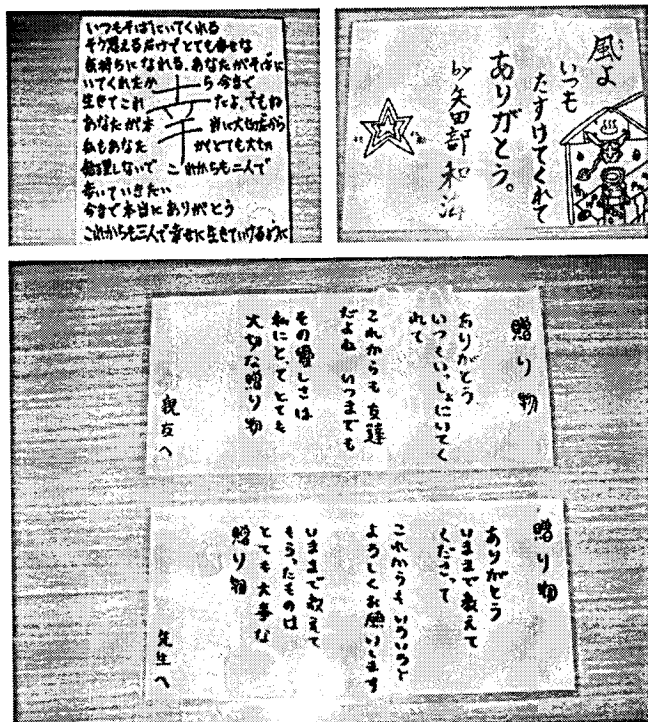 いつもそばにいてくれる
そう思えるだけでとても幸せな
気持ちになれる、あなたがそばに
いてくれたから今まで
生きてこれたよ、でもね
あなたが本当に大切だから
私もあなたがとても
無理しないで これからも二人で
歩いていきたい
今まで本当にありがとう
これからも二人で幸せに生きていけるように
幸
風よ
いつも
たすけてくれて
ありがとう。
by 矢田部 和
贈り物
ありがとう
いつもいっしょにいてく
れて
これからも 友達
だよね いつまでも
その優しさは
私にとってとても
大切な贈り物
親友へ
贈り物
ありがとう
いままで教えて
くださって
これからも いろいろと
よろしくお願いします
いままで教えて
もらったものは
とても大事な
贈り物
先生へ